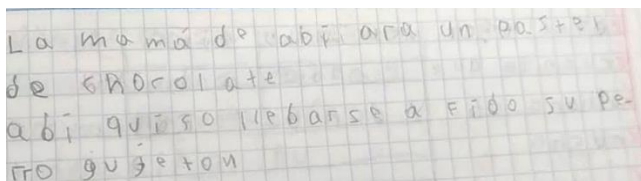 La mamá de abi ara un paster
de chocolate
abi quiso llebarse a Fido su pe-
rro gugeton